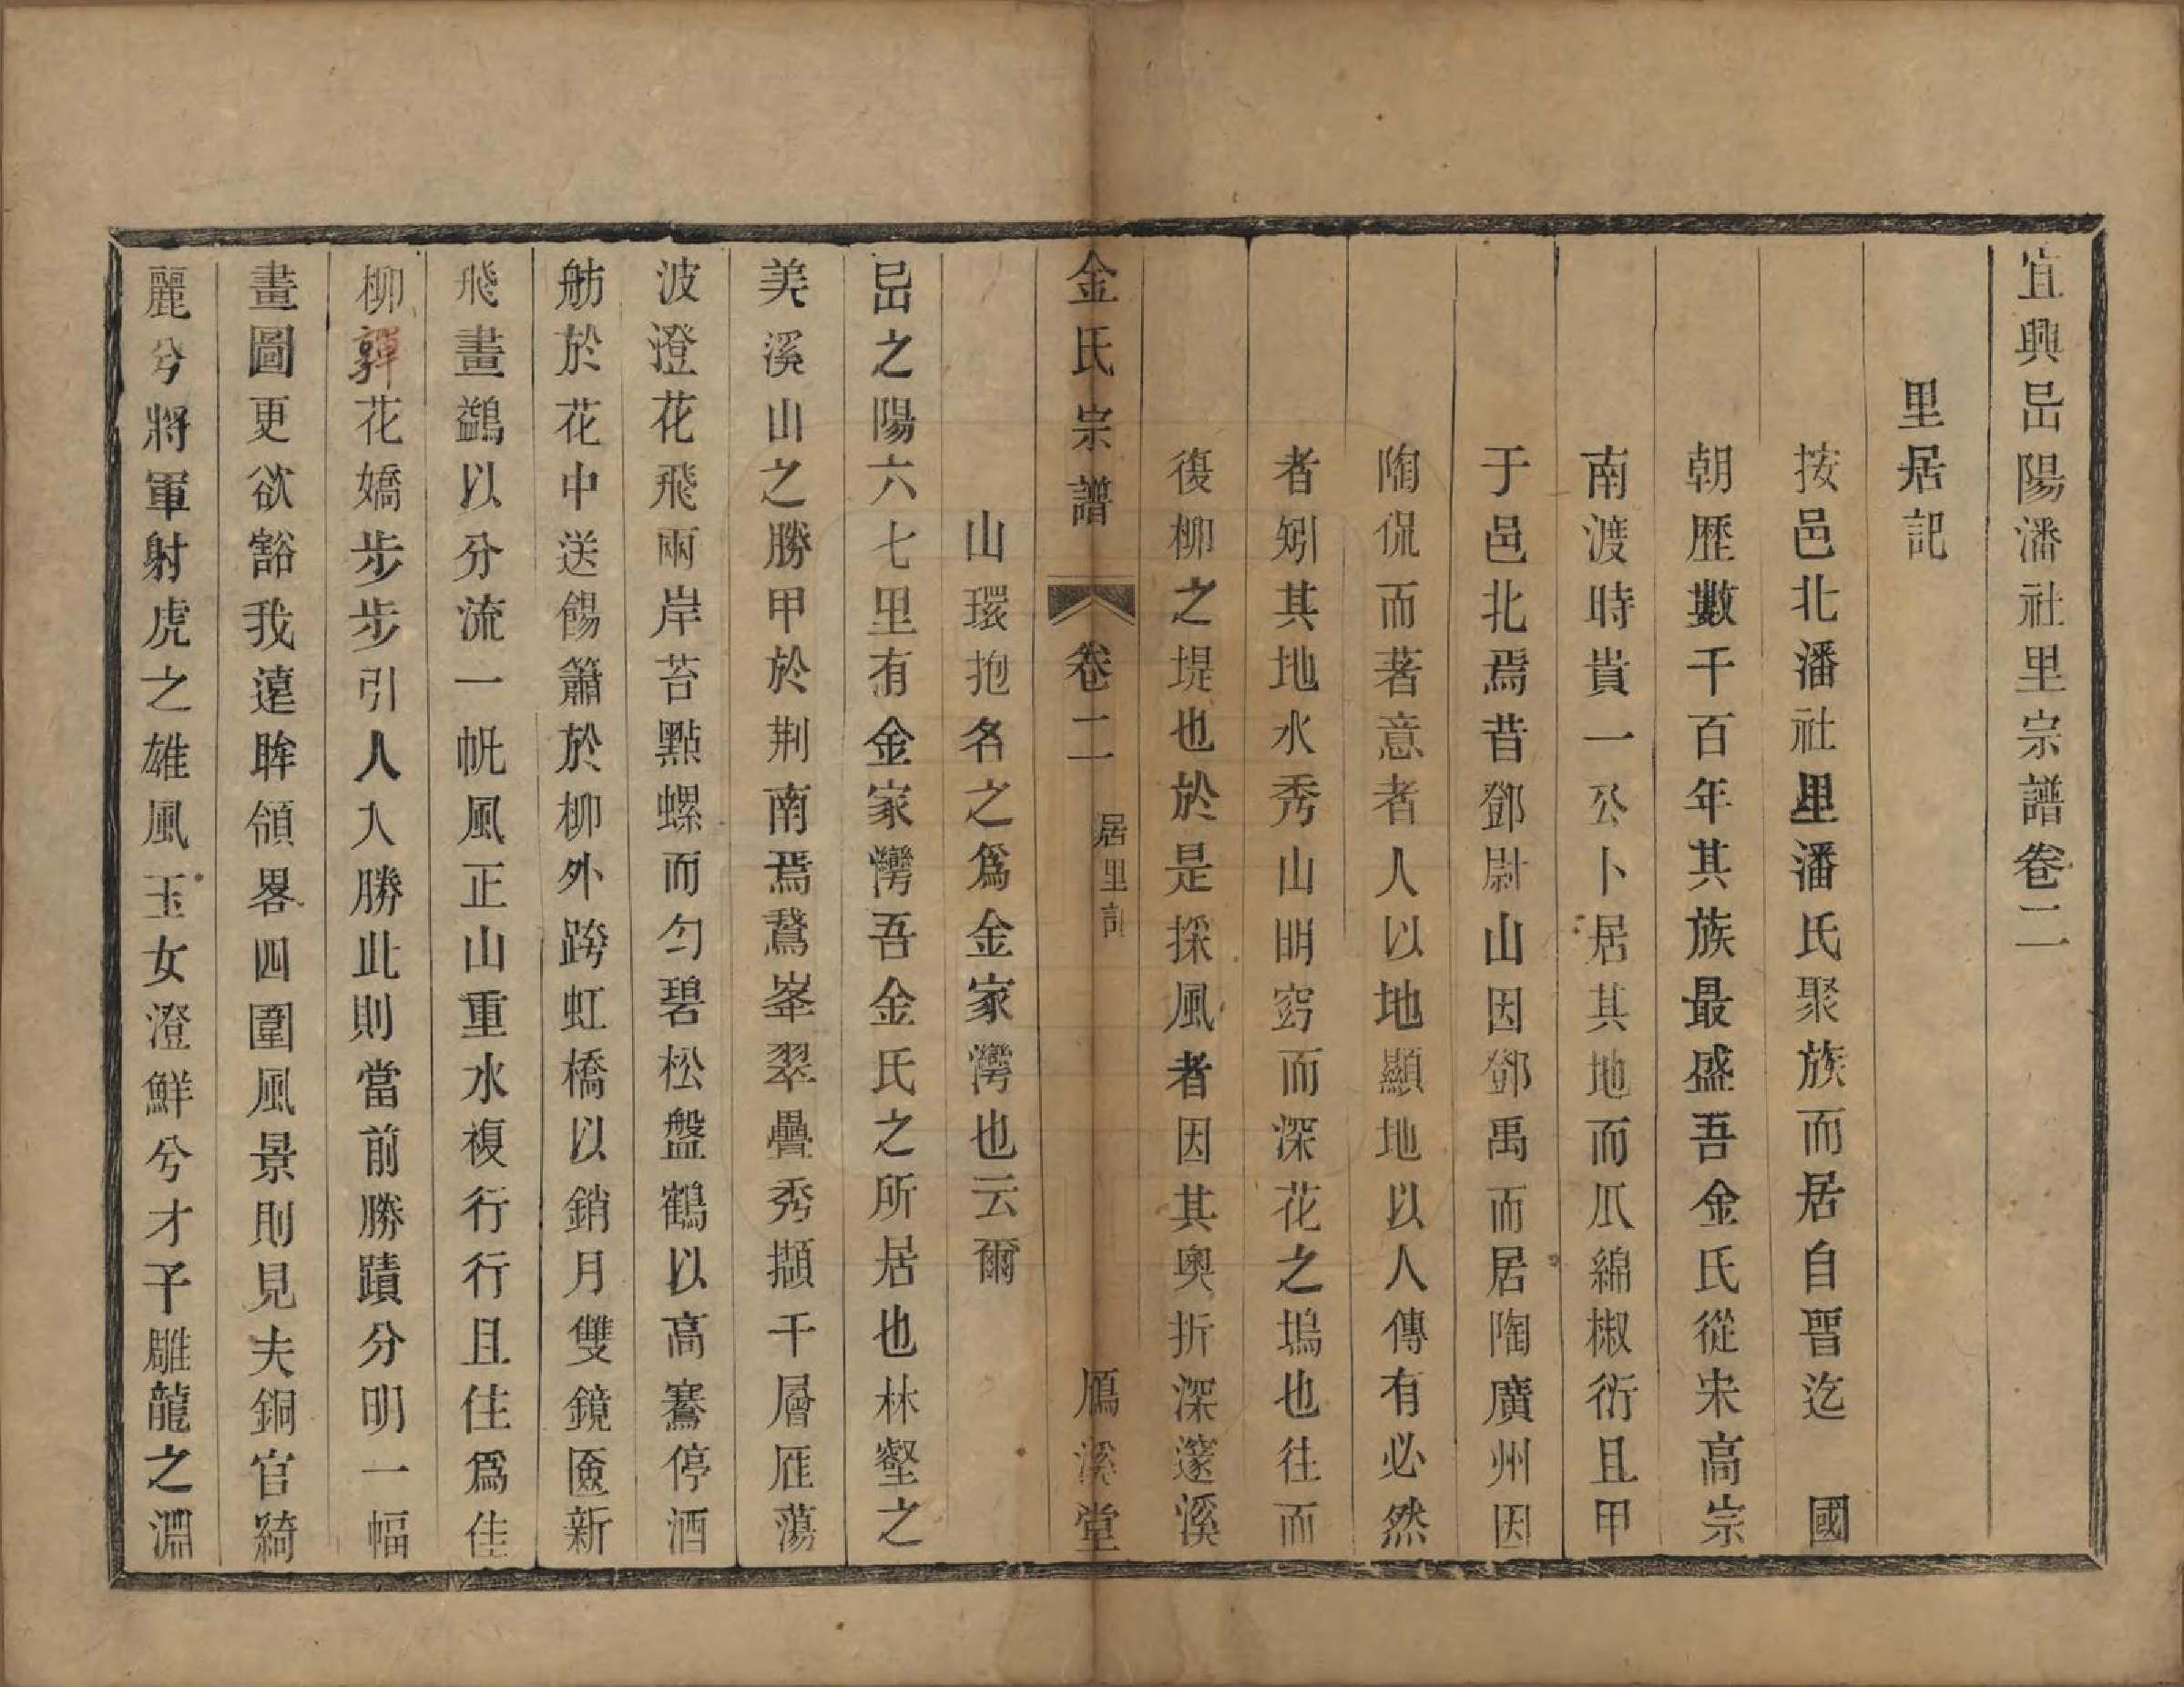 宜興岊陽潘社里宗譜卷二
里居記
按邑北潘社里潘氏聚族而居自晉迄 國
朝歷數千百年其族最盛吾金氏從宋高宗
南渡時貴一公卜居其地而瓜綿椒衍且甲
于邑北焉昔鄧尉山因鄧禹而居陶廣州因
陶侃而著意者人以地顯地以人傳有必然
者矧其地水秀山明窈而深花之塢也往而
復柳之堤也於是採風者因其奧折深邃溪
金氏宗譜 卷二 居里記 鴈溪堂
山環抱名之爲金家灣也云爾
岊之陽六七里有金家灣吾金氏之所居也林壑之
美溪山之勝甲於荆南焉鵞峯翠疊秀擷千層雁蕩
波澄花飛兩岸苔點螺而勻碧松盤鶴以高騫停酒
舫於花中送餳簫於柳外跨虹橋以銷月雙鏡匳新
飛畫鷁以分流一帆風正山重水複行行且住爲佳
柳嚲花嬌步步引人入勝此則當前勝蹟分明一幅
畫圖更欲豁我遠眸領畧四圍風景則見夫銅官綺
麗兮將軍射虎之雄風玉女澄鮮兮才子雕龍之淵